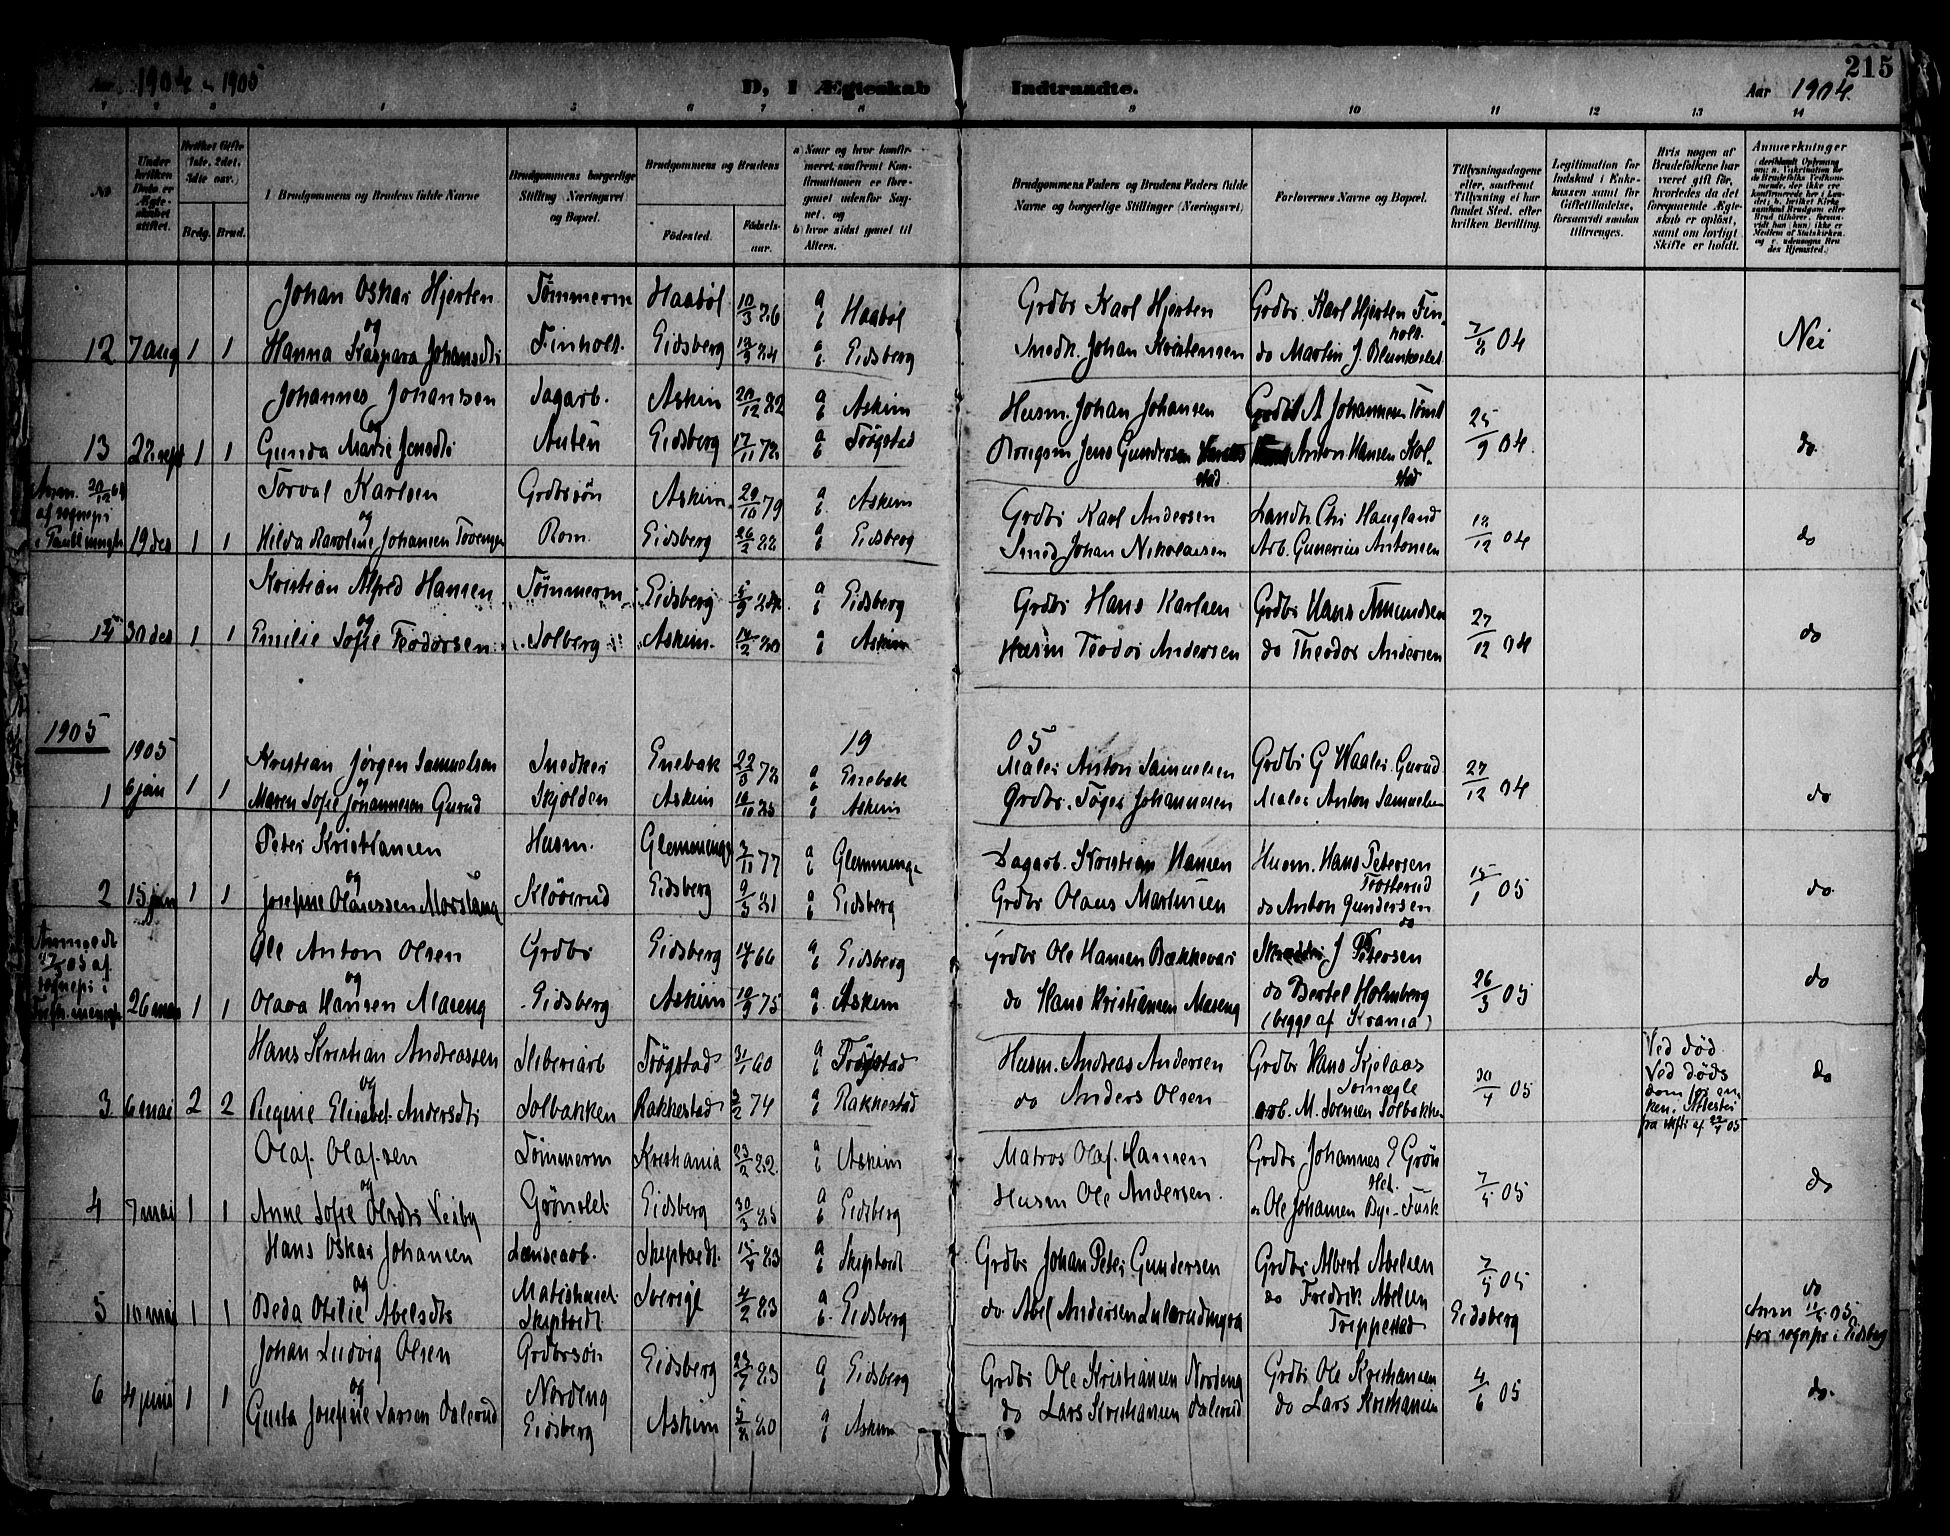 Aar 1904 - 1905 D, 1 Ægteskab Indtraadte. Aar 1904. 215
1 2 3 4 5 6 7 8 9 10 11 12 13 14
No
Under hvilken Dato er Ægteskabet stiftet.
Hvilket Gifte (1ste, 2det, 3die osv.)
Brdg. Brud.
Brudgommens og Brudens fulde Navne
Brudgommens borgerlige Stilling (Næringsvei) og Bopæl.
Brudgommens og Brudens
Fødested. Fødselsaar.
a) Naar og hvor konfirmeret, saafremt Konfirmationen er foregaaet udenfor Sognet, og
b) hvor sidst gaaet til Alters.
Brudgommens Faders og Brudens Faders fulde Navne og borgerlige Stillinger (Næringsvei)
Forlovernes Navne og Bopæl.
Tillysningsdagene eller, saafremt Tillysning ei har fundet Sted, efter hvilken Bevilling.
Legitimation for Indskud i Enkekassen samt for Giftetilladelse, forsaavidt saadan tiltrænges.
Hvis nogen af Brudefolkene har været gift før, hvorledes da det foregaaende Ægteskab er opløst, samt om lovligt Skifte er holdt.
Anmærkninger
Johan Oskar Hjerten Tømmerm Haabøl 10/3 26 a Haabøl Grdbr Karl Hjerten Grdbr. Karl Hjerten Finholt
12 7 aug 1 1 og Hanna Kaspara Johansdtr Finholt Eidsberg 12/9 84 b Eidsberg Snedk. Johan Kristensen do Martin J. 7/8 04 Nei
Johannes Johansen Dagarb. Askim 20/12 82 a b Askim Husm. Johan Johansen Grdbr A Johannesen
13 22 sept 1 1 og Gunda Marie Jensdtr Eidsberg 17/11 72 a b Trøgstad Jens Gundersen Anton Hansen Kolstad 25/9 04 do
Anm. 20/12 04 af sognepr i Torval Karlsen Grdbrsøn Askim 29/10 79 a Askim Grdbr Karl Andersen Landh. Chr Haugland
19 des 1 1 og Hilda Karoline Johansen Rom. Eidsberg 26/2 82 a b Eidsberg Smed Johan Nikolaisen Arb. Gunerius Antonsen 18/12 04 do
Kristian Alfred Hansen Tømmerm. Eidsberg 5/9 84 a b Eidsberg Grdbr Hans Karlsen Grdbr Hans Amundsen
15 30 des 1 1 og Emilie Sofie Teodorsen Solberg Askim. 14/2 80 a b Askim Husm Teodor Andersen do Theodor Andersen 27/12 04 do
1905 1905 19 05
Kristian Jørgen Samuelsen Snedker Enebak 22/8 72 a Enebak Maler Anton Samuelsen Grdbr G Waaler Gurud
1 6 jan 1 1 og Maren Sofie Johannesen Gurud Skjolden Askim 10/10 85 a b Askim Grdbr. Johannesen Maler Anton Samuelsen 27/12 04 do
Peter Kristiansen Husm. Glemminge 3/11 77 a b Glemminge Dagarb. Kristian Hansen Husm. Hans Petersen Trosterud
2 15 jan 1 1 og Josefine Olaussen Morstang Kløverud Eidsberg 9/3 81 a b Eidsberg Grdbr Olaus Martinsen do Anton Gundersen do 15/1 05 do
Anmeldt af sognepr i Ole Anton Olsen Grdbr Eidsberg 14/6 66 a b Eidsberg Grdbr Ole Hansen Bækkevar J Petersen
26 mars 1 1 og Olava Hansen Maseng Eidsberg Askim 10/9 75 a b Askim do Hans Kristiansen Maseng do Bertel Holmberg (begge af Krania) 26/3 05 do
Hans Kristian Andreassen Sliberiarb Trøgstad 31/1 60 a b Trøgstad Husm. Andreas Andersen Grdbr Hans Skjelaas
3 6 mai 2 2 og Regine Elisabet Andersdtr Solbakken Rakkestad 3/2 74 a b Rakkestad do Anders Olsen arb. M. Sørensen Solbakken 30/4 05 Ved død. Ved døds dom for enken. Attester fra skifte af 22/4 05 do
Olaf Olafsen Tømmerm Kristiania 23/2 82 a b Askim Matros Olaf Hansen Grdbr Johannes E Grønslet.
4 7 mai 1 1 og Anne Sofie Olsdtr Veiby Grønslet Eidsberg 30/3 85 a b Eidsberg Husm Ole Andersen. Ole Johansen 7/5 05 do
Hans Oskar Johansen Lænsearb. Skiptvedt 15/4 83 a b Skiptvedt Grdbr Johan Peter Gundersen Grdbr Albert Abelsen
5 10 mai 1 1 og Beda Otilie Abelsdtr Skiptvedt Sverige 4/2 83 a b Eidsberg do. Abel Andersen do Fredrik Abelsen Trippestad 7/5 05 Eidsberg do Anm 05 for sognepr i Eidsberg
Johan Ludvig Olsen Grdbrsøn Eidsberg 83 a b Eidsberg Grdbr Ole Kristiansen Nordeng Grdbr Ole Kristiansen
6 4 juni 1 1 og Gusta Josefine Larsen Dalerud Nordeng Eidsberg Askim 80 a b Askim do Lars Kristiansen Dalerud do Lars Kristiansen 4/6 05 do.